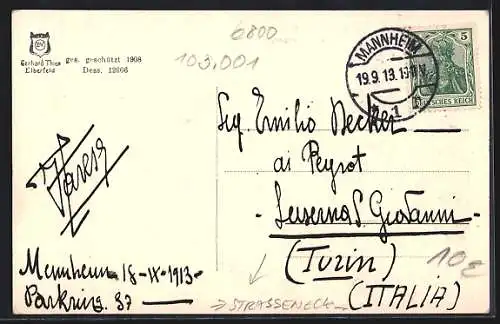 6800
103.001
Gerhard Thien
Elberfeld
ges. geschützt 1908
Dess. 12066
MANNHEIM
19.9.13.
1
5
DEUTSCHES REICH
Sig. Emilio Decker
ai Peyrot
Luserna S. Giovanni
(Turin)
(ITALIA)
Mannheim 18-IX-1913-
Parkring 37
→ STRASSENECK
10€